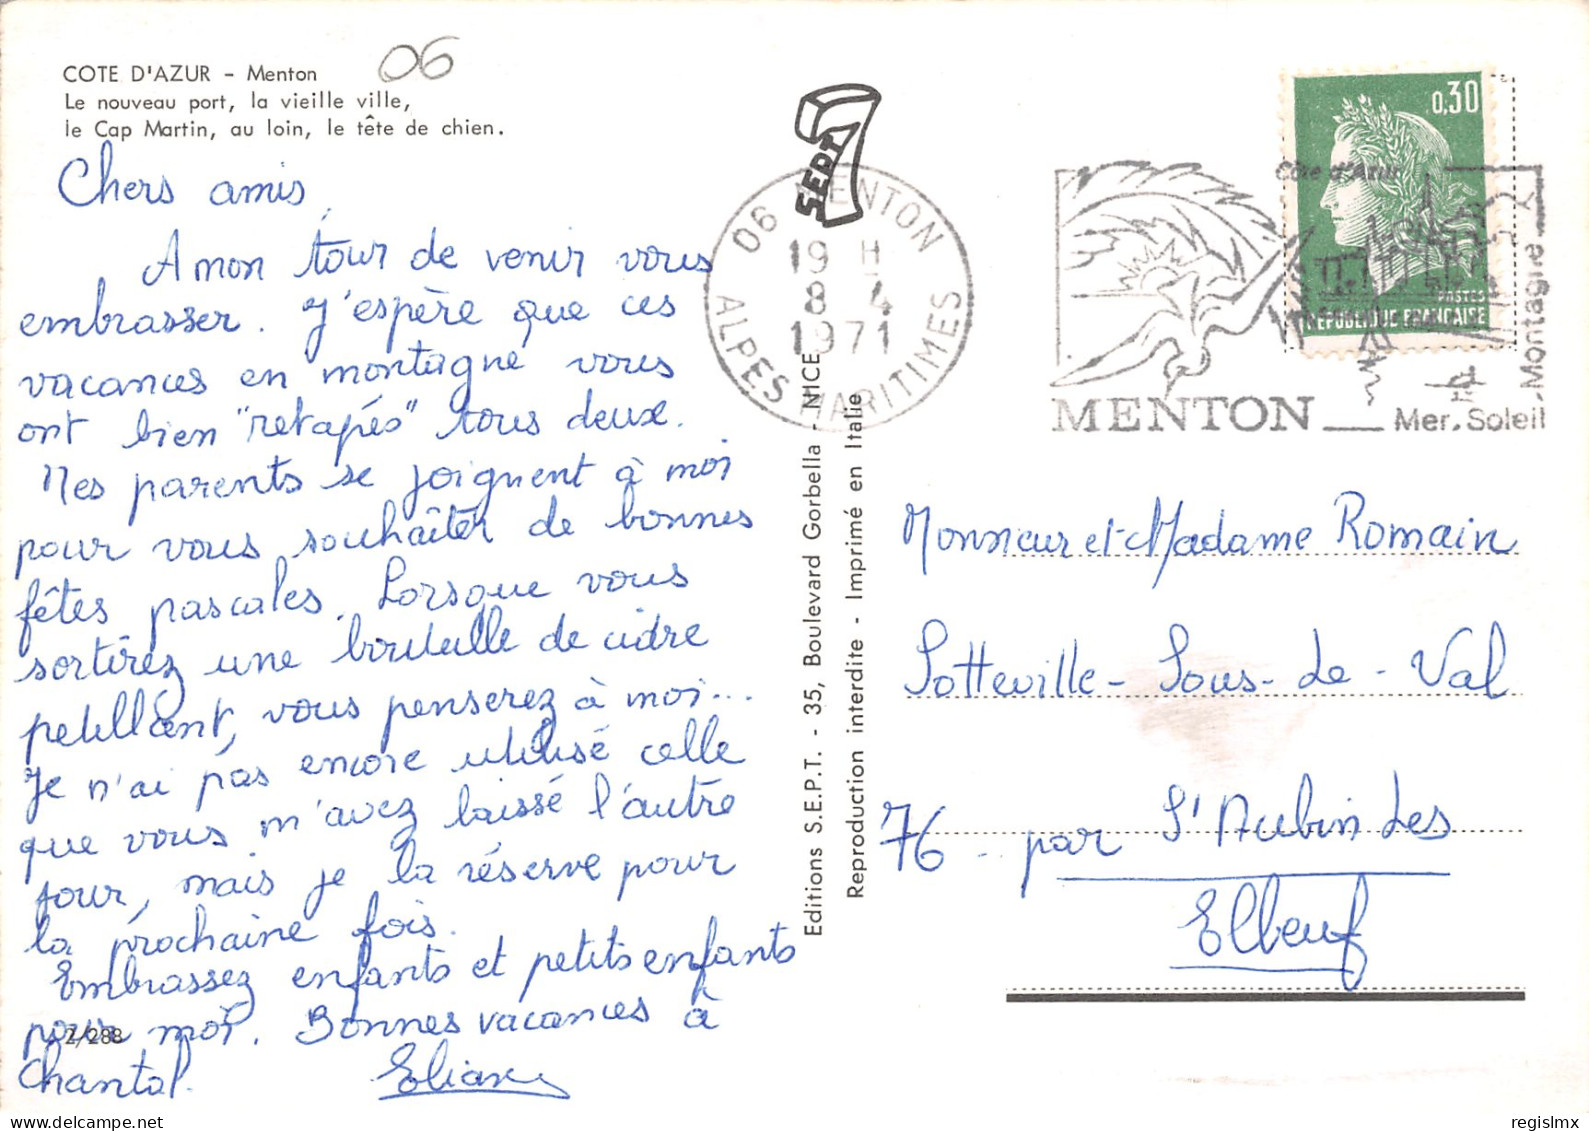 COTE D'AZUR - Menton
Le nouveau port, la vieille ville,
le Cap Martin, au loin, le tête de chien.
06
Chers amis,
A mon tour de venir vous
embrasser. J'espère que ces
vacances en montagne vous
ont bien "retapés" tous deux.
Mes parents se joignent à moi
pour vous souhaiter de bonnes
fêtes pascales. Lorsque vous
sortirez une bouteille de cidre
petillant, vous penserez à moi...
Je n'ai pas encore utilisé celle
que vous m'avez laissé l'autre
jour, mais je la réserve pour
la prochaine fois.
Embrassez enfants et petits enfants
pour moi. Bonnes vacances à
Chantal.
Eliane
2/288
SEPT
7
Editions S.E.P.T. - 35, Boulevard Gorbella - NICE
Reproduction interdite - Imprimé en Italie
06 MENTON
19 H
8 4
1971
ALPES MARITIMES
Côte d'Azur
MENTON
Mer. Soleil
Montagne
0,30
POSTES
REPUBLIQUE FRANÇAISE
Monsieur et Madame Romain
Sotteville-Sous-Le-Val
76 - par St Aubin Les
Elbeuf
regislmx